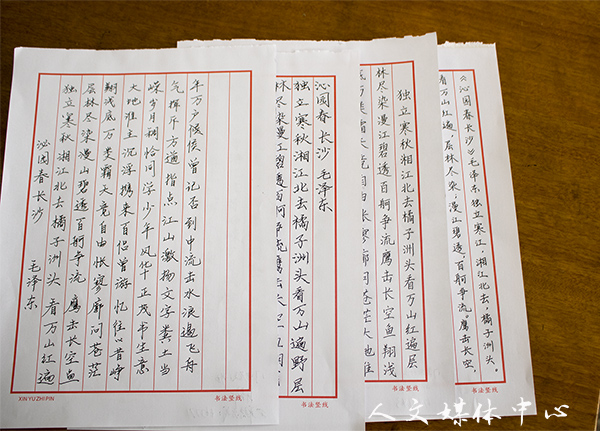 沁园春长沙 毛泽东
独立寒秋湘江北去橘子洲头看万山红遍
层林尽染漫山碧透百舸争流鹰击长空鱼
翔浅底万类霜天竞自由怅寥廓问苍茫
大地谁主沉浮携来百侣曾游忆往昔峥
嵘岁月稠恰同学少年风华正茂书生意
气挥斥方遒指点江山激扬文字粪土当
年万户侯候曾记否到中流击水浪遏飞舟
XIN YU ZHI PIN
书法竖线
沁园春 长沙 毛泽东
独立寒秋湘江北去橘子洲头看万山遍野层
林尽染漫江碧透百舸争流鹰击长空
书法竖线
独立寒秋湘江北去橘子洲头看万山红遍层
林尽染漫江碧透百舸争流鹰击长空鱼翔浅
霜天竞自由怅寥廓问苍茫大地谁
书法竖线
《沁园春长沙》毛泽东 独立寒江，湘江北去，橘子洲头。
看万山红遍，层林尽染，漫江碧透，百舸争流。鹰击长空，
书法竖线
人文媒体中心